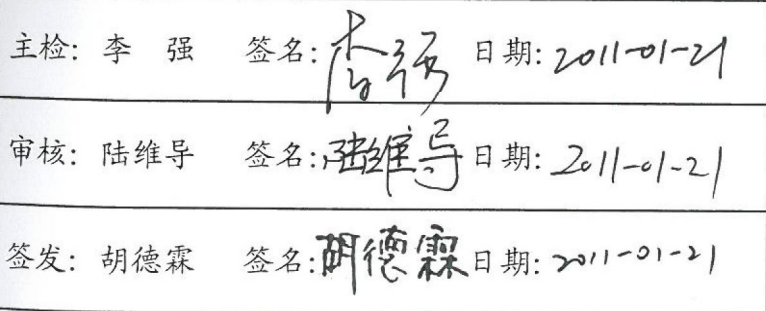 主检: 李 强 签名: 李强 日期: 2011-01-21
审核: 陆维导 签名: 陆维导 日期: 2011-01-21
签发: 胡德霖 签名: 胡德霖 日期: 2011-01-21